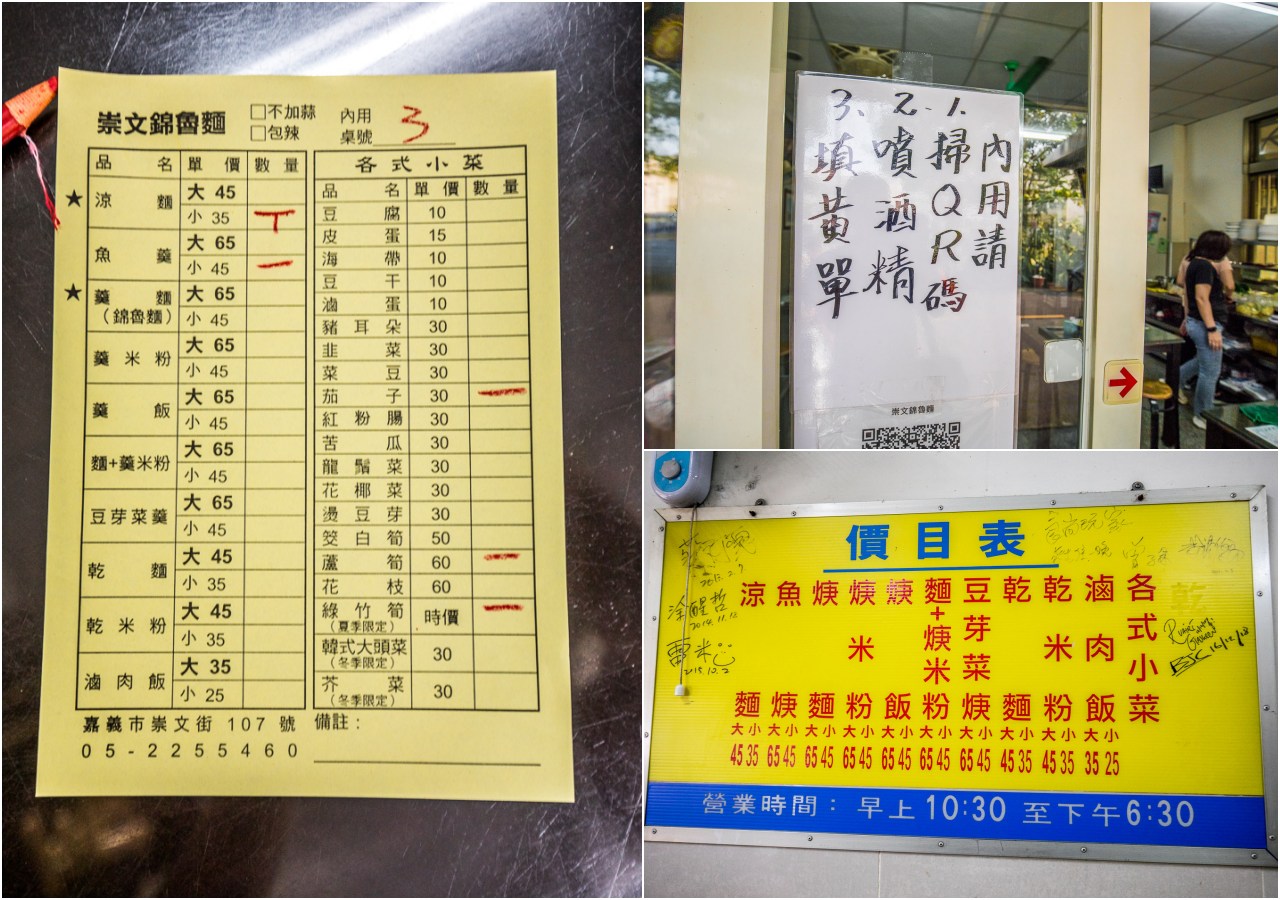 崇文錦魯麵
□不加蒜
□包辣
內用
桌號 3
品名 單價 數量
★ 涼麵 大 45
小 35 丅
魚羹 大 65
小 45 一
★ 羹麵 (錦魯麵) 大 65
小 45
羹米粉 大 65
小 45
羹飯 大 65
小 45
麵+羹米粉 大 65
小 45
豆芽菜羹 大 65
小 45
乾麵 大 45
小 35
乾米粉 大 45
小 35
滷肉飯 大 35
小 25
嘉義市崇文街 107 號
05-2255460
各式小菜
品名 單價 數量
豆腐 10
皮蛋 15
海帶 10
豆干 10
滷蛋 10
豬耳朵 30
韭菜 30
菜豆 30
茄子 30 一
紅粉腸 30
苦瓜 30
龍鬚菜 30
花椰菜 30
燙豆芽 30
筊白筍 50
蘆筍 60 一
花枝 60
綠竹筍 (夏季限定) 時價 一
韓式大頭菜 (冬季限定) 30
芥菜 (冬季限定) 30
備註：
內用請
1.掃QR碼
2.噴酒精
3、填黃單
崇文錦魯麵
價目表
涼麵 大小 45 35
魚焿 大小 65 45
焿麵 大小 65 45
焿米粉 大小 65 45
焿飯 大小 65 45
麵+焿米粉 大小 65 45
豆芽菜焿 大小 65 45
乾麵 大小 45 35
乾米粉 大小 45 35
滷肉飯 大小 35 25
各式小菜
營業時間：早上10:30 至下午6:30
涂醒哲
2014.11.12
雷米
2015.10.2
16/12/18